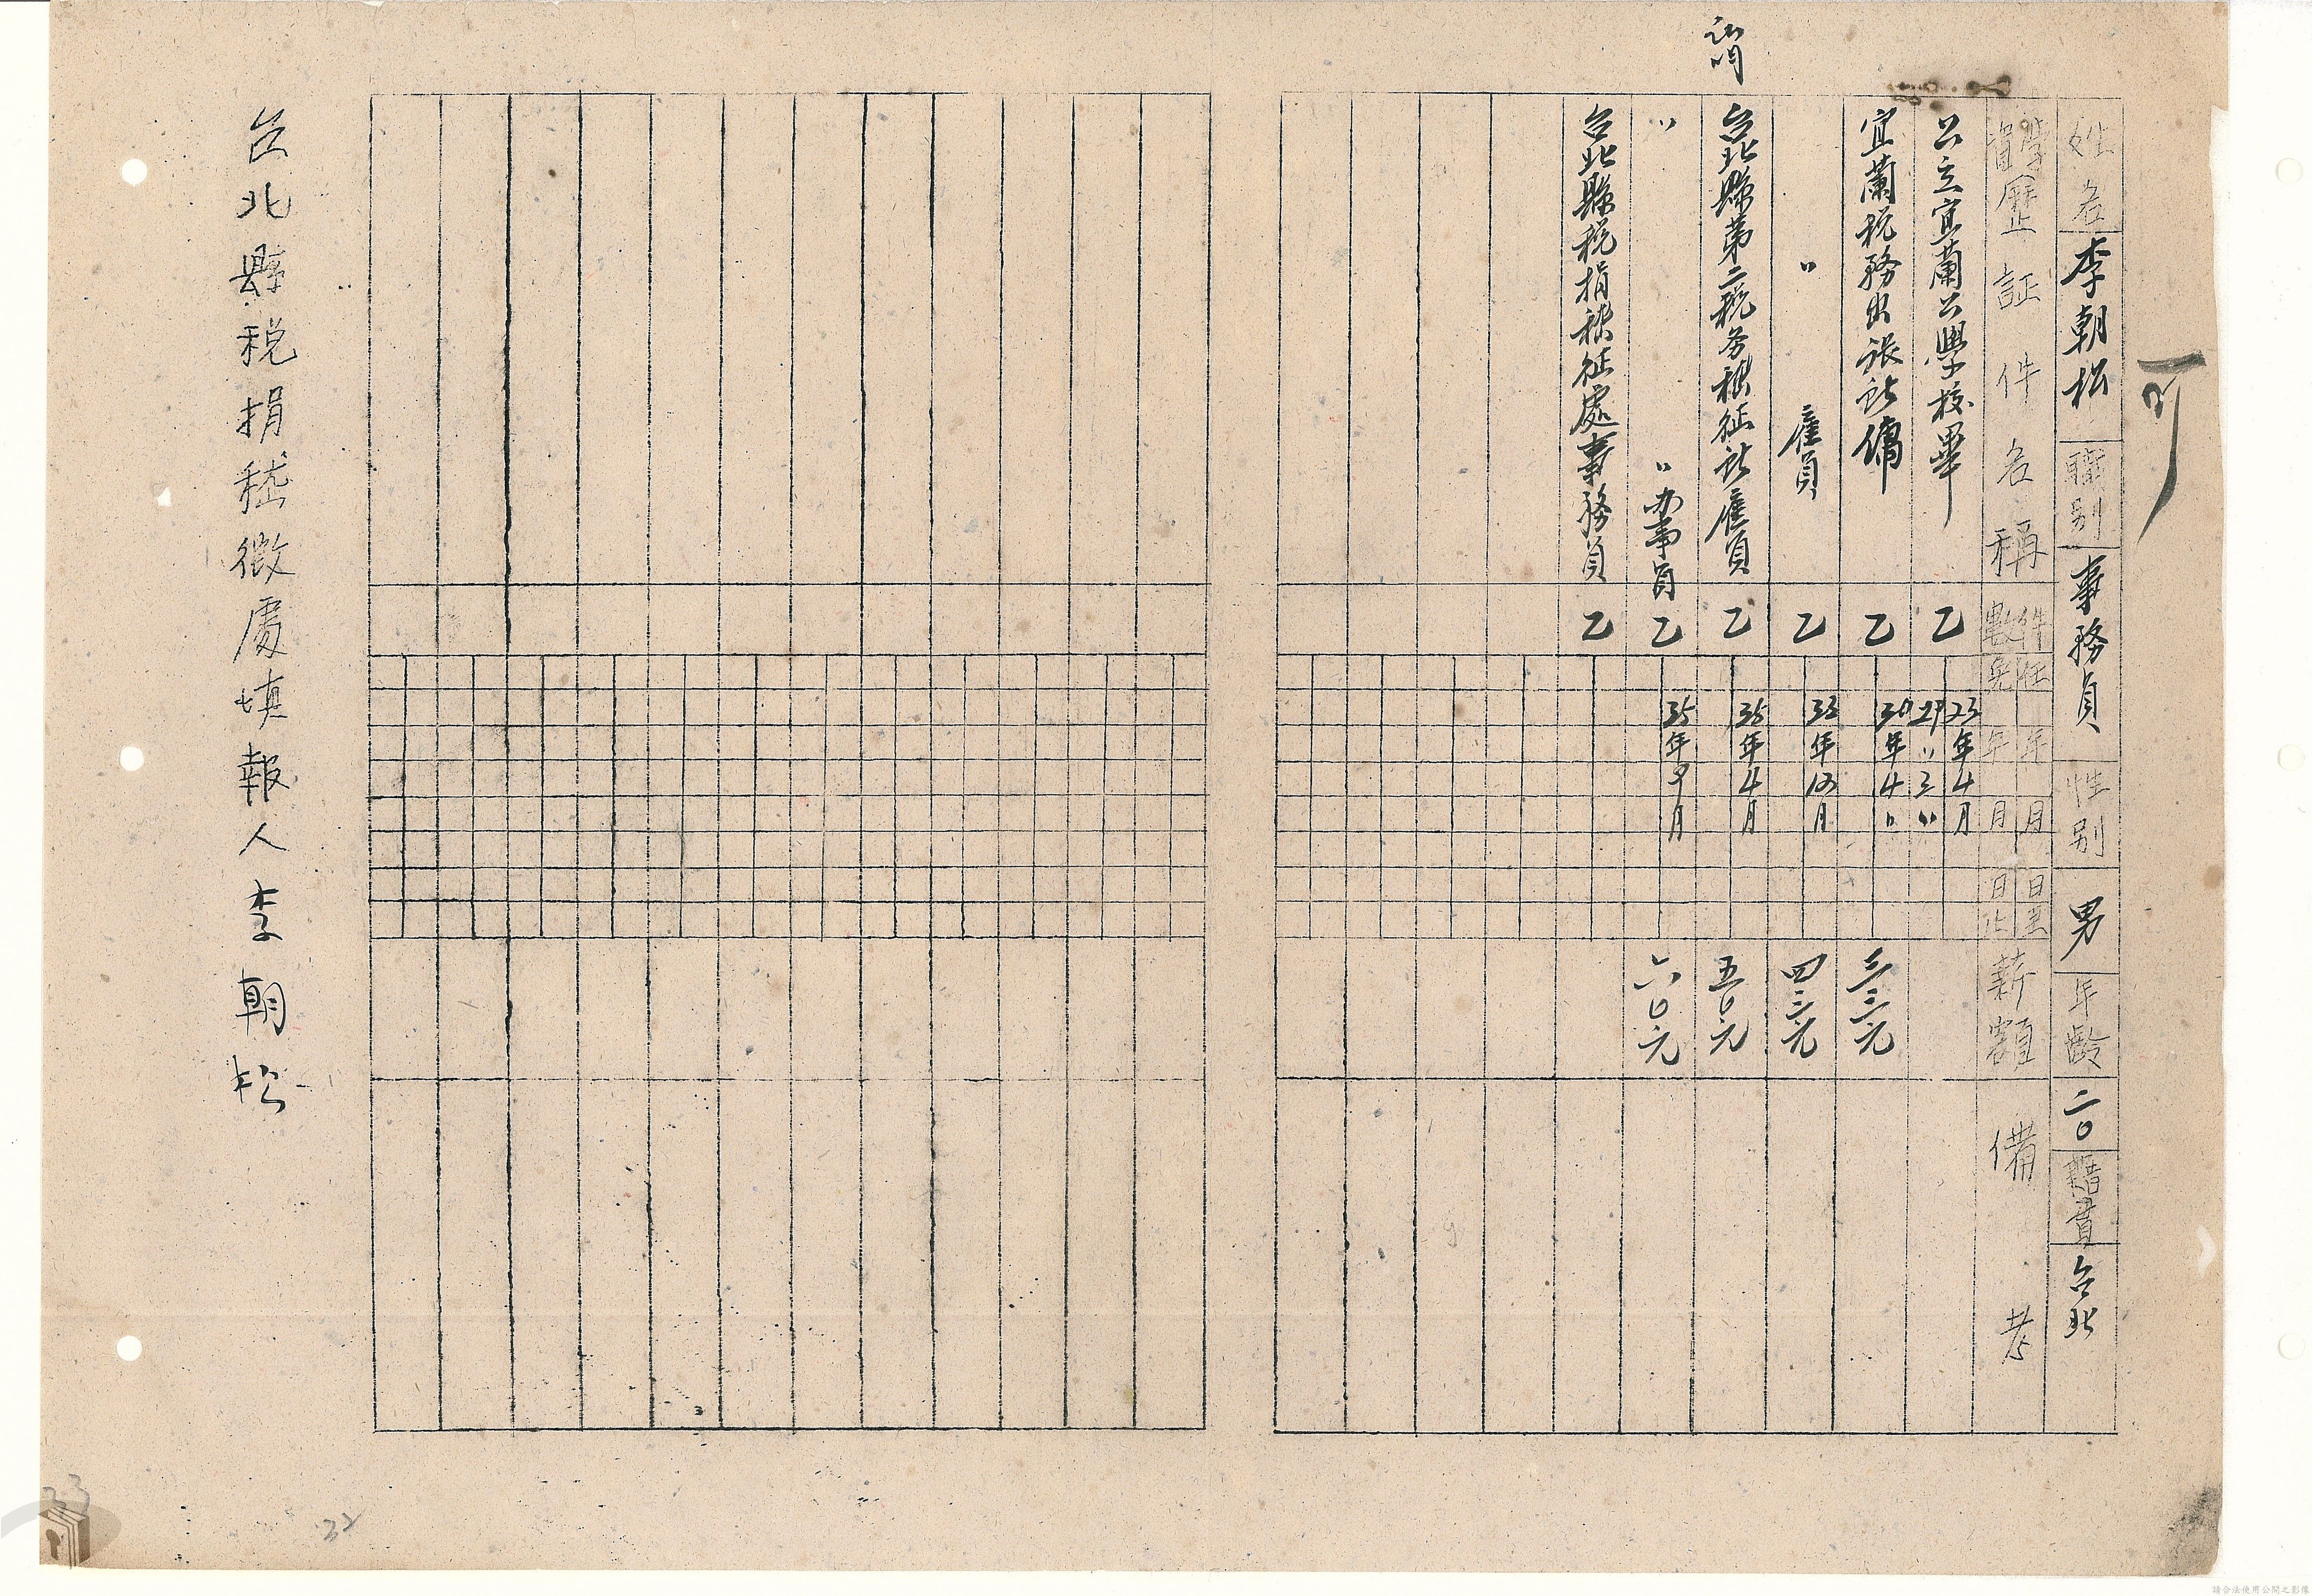 可
姓名 李朝松 職別 事務員 性別 男 年齡 二〇 籍貫 台北
學資歷証件名稱 件數 任年月日至 免年月日止 薪額 備考
公立宜蘭公學校畢 乙 23年4月 29〃3〃
宜蘭税務出張所傭 乙 30年4〃 三三元
〃 雇員 乙 33年10月 四三元
台北縣第二税务稽征所雇員 乙 35年4月 五〇元
〃 〃 办事員 乙 35年9月 六〇元
台北縣税捐稽征處事務員 乙
台北縣税捐稽徵處填報人李朝松
32
33
請合法使用公開之影像